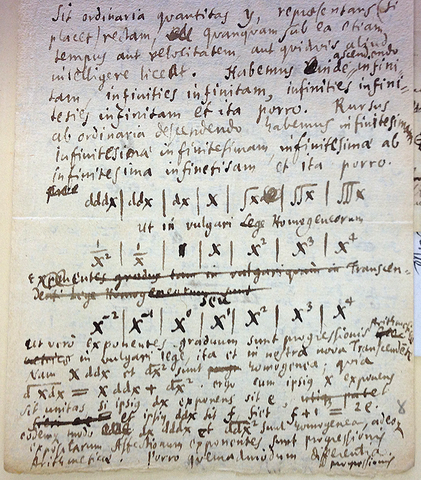 Sit ordinaria quantitas y, repraesentans (si
placet) rectam, quanquam sub ea etiam
tempus aut velocitatem aut quidvis aliud
intelligere liceat. Habemus inde ascendendo infini-
tam, infinities infinitam, infinities infini-
ties infinitam et ita porro. Rursus
ab ordinaria descendendo habemus infinitesimam
infinitesima infinitesimam, infinitesima ab
infinitesima et ita porro.
dddx | ddx | dx | x | ∫x | ∫∫x | ∫∫∫x
ut in vulgari Lege Homogeneorum
1/x² | 1/x | 1 | x | x² | x³ | x⁴
Exponentes graduum tam in vulgari quam in Transcen-
dente Lege Homogeneorum sunt
seu
x⁻² | x⁻¹ | x⁰ | x¹ | x² | x³ | x⁴
ut vero exponentes graduum sunt progressionis Arithmeticae
in vulgari lege, ita et in nostra nova Transcendente
Nam x ddx et dx² sunt homogenea; quia
d xdx = x ddx + dx²: ergo cum ipsius x exponens
sit unitas, ipsius dx exponens sit e,
et ipsius ddx sit f, fiet f+1 = 2e.
eodem modo dx dddx et ddx² sunt homogenea, adeoque
Affectionum exponentes sunt progressionis
Arithmeticae. Porro quemadmodum differentia
progressionis
8